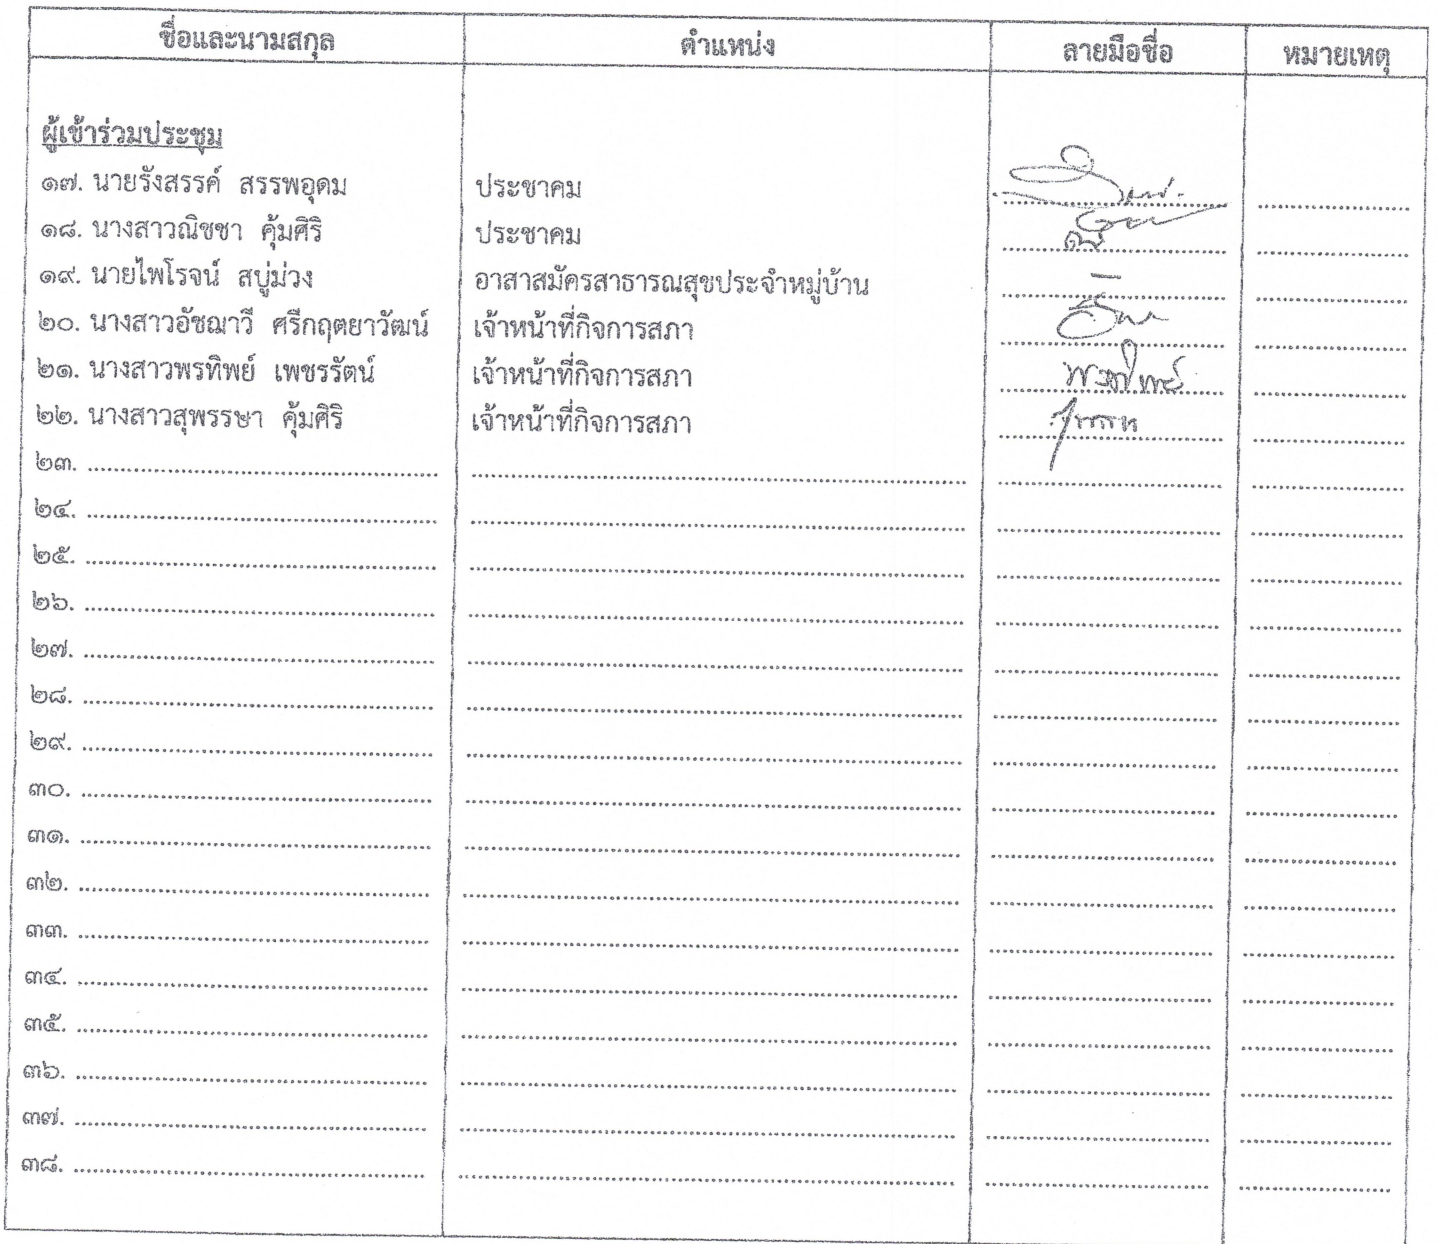 ชื่อและนามสกุล ตำแหน่ง ลายมือชื่อ หมายเหตุ
ผู้เข้าร่วมประชุม
๑๗. นายรังสรรค์ สรรพอุดม ประชาคม
๑๘. นางสาวณิชชา คุ้มศิริ ประชาคม
๑๙. นายไพโรจน์ สบู่ม่วง อาสาสมัครสาธารณสุขประจำหมู่บ้าน
๒๐. นางสาวอัชฌาวี ศรีกฤตยาวัฒน์ เจ้าหน้าที่กิจการสภา
๒๑. นางสาวพรทิพย์ เพชรรัตน์ เจ้าหน้าที่กิจการสภา พรทิพย์
๒๒. นางสาวสุพรรษา คุ้มศิริ เจ้าหน้าที่กิจการสภา
๒๓.
๒๔.
๒๕.
๒๖.
๒๗.
๒๘.
๒๙.
๓๐.
๓๑.
๓๒.
๓๓.
๓๔.
๓๕.
๓๖.
๓๗.
๓๘.